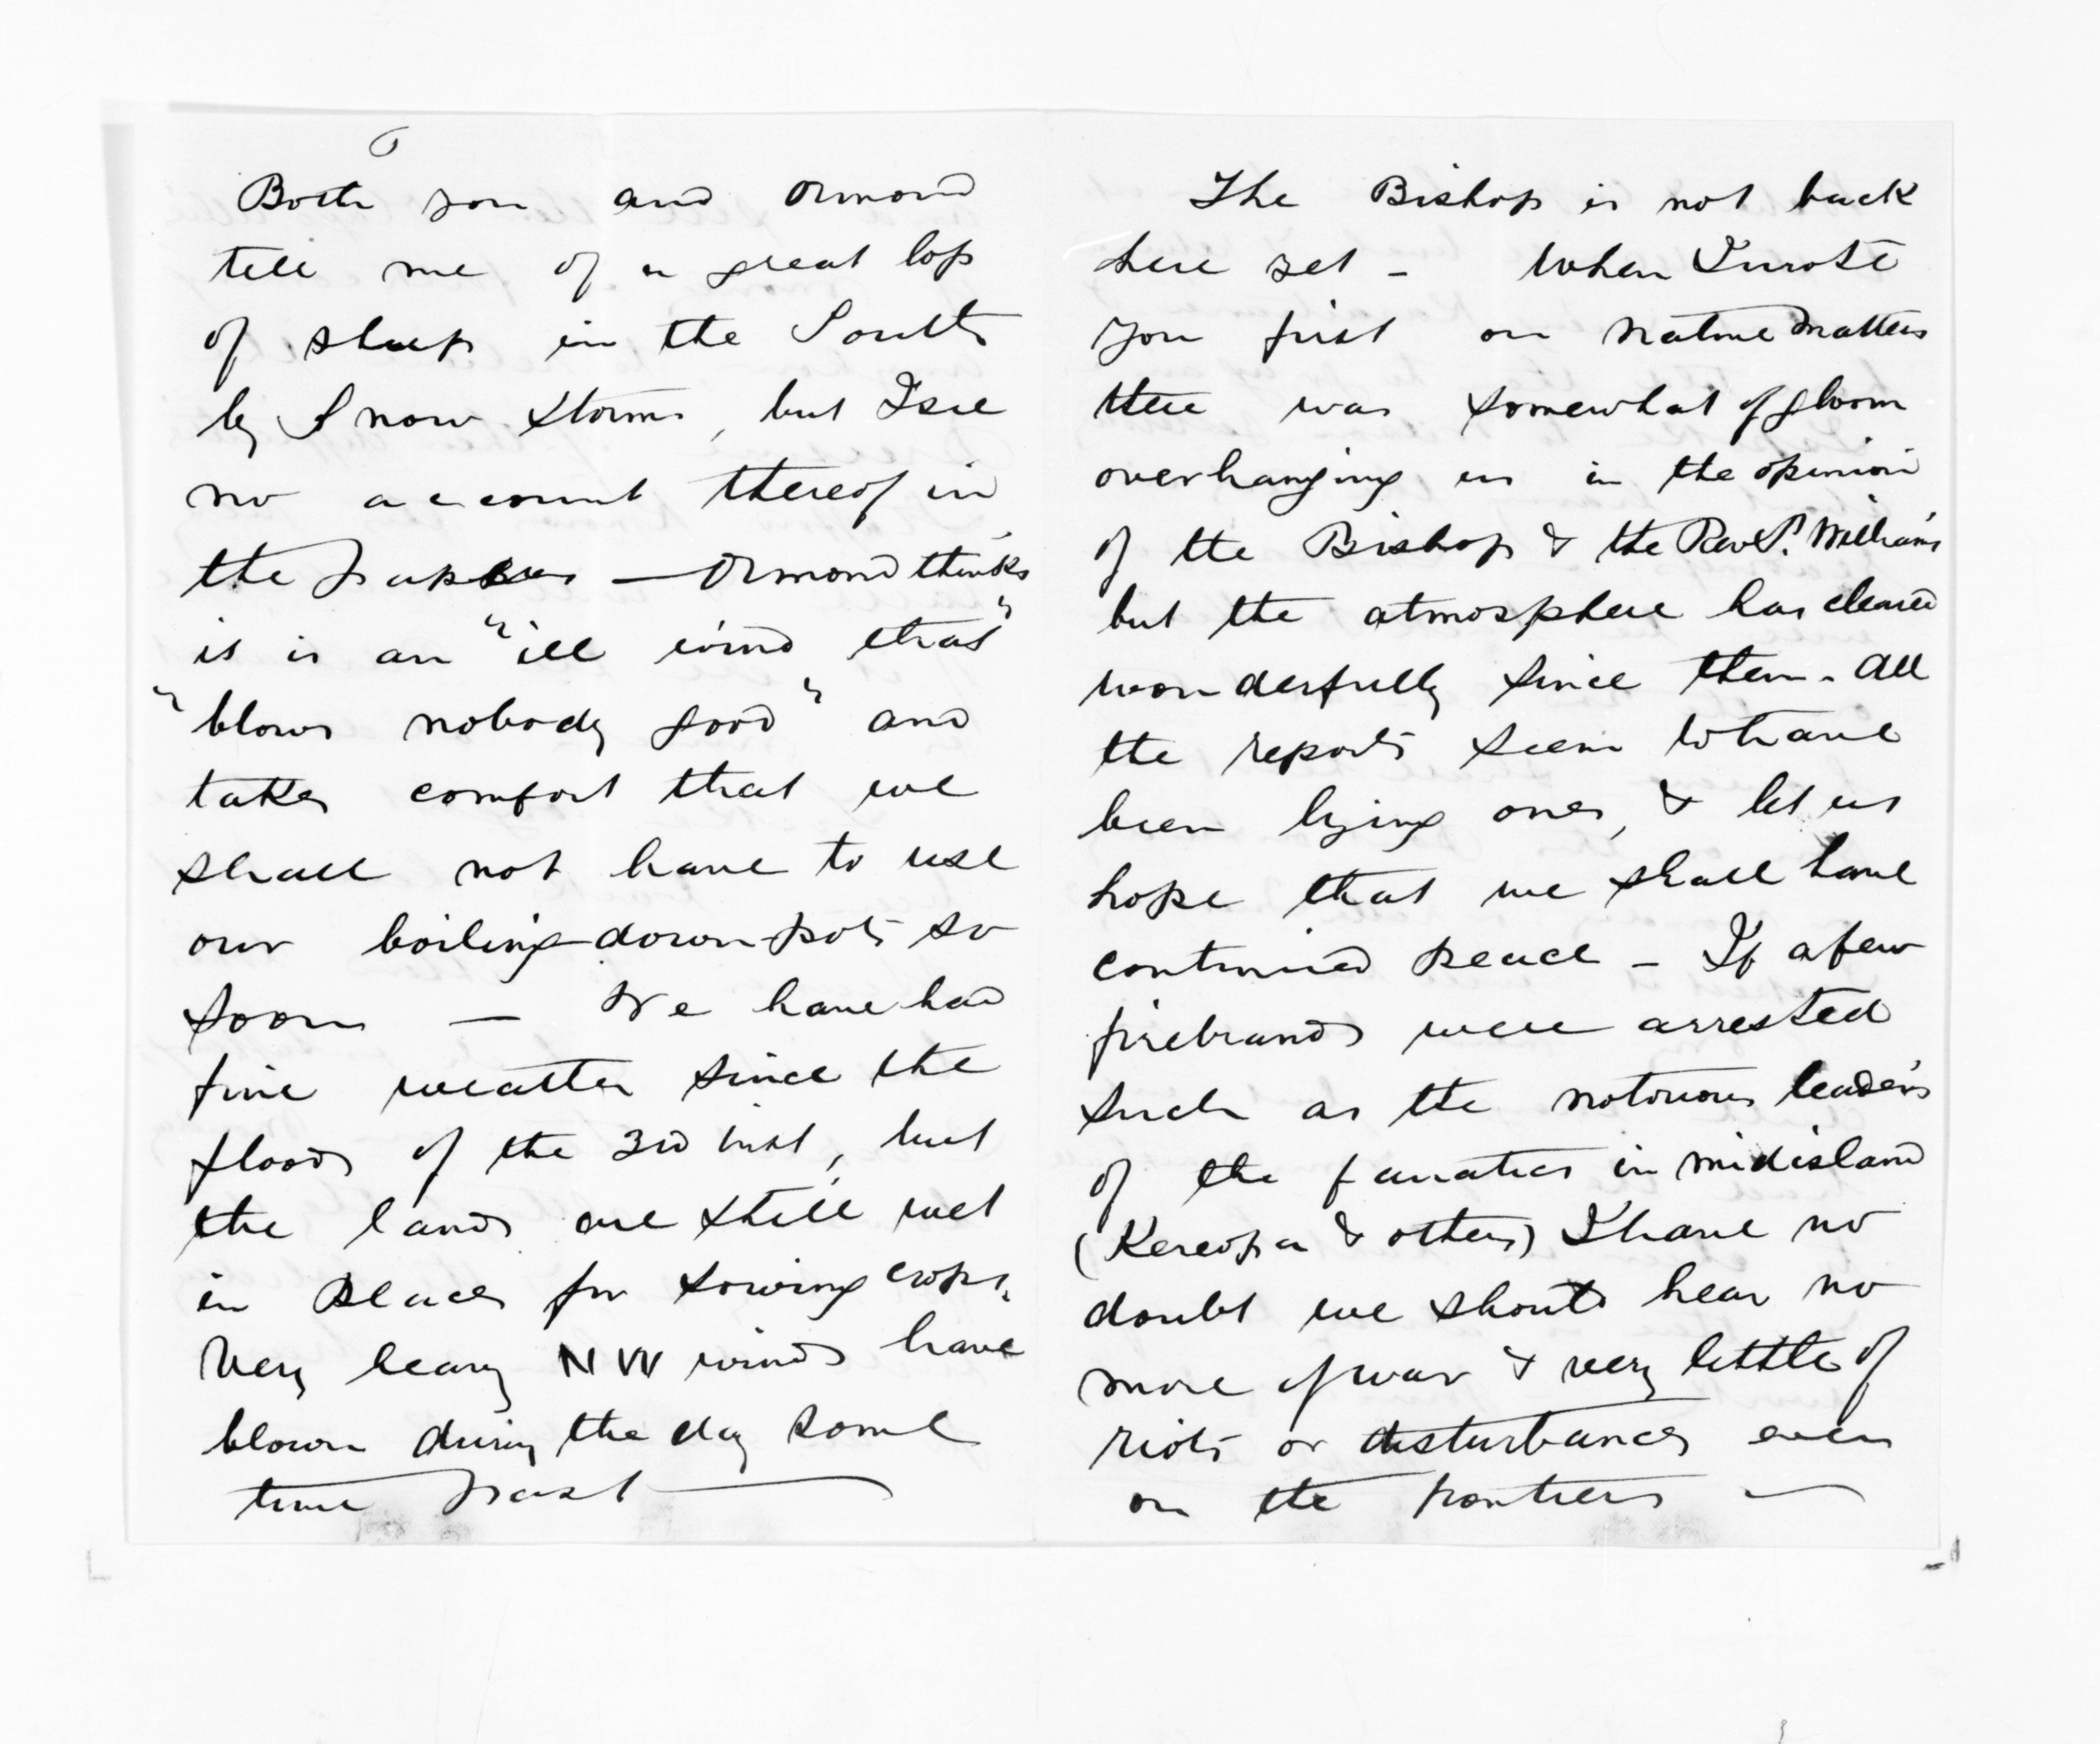 6
Both you and Ormond
tell me of a great loss
of sheep in the South
by Snow storms, but I see
no account thereof in
the papers — Ormond thinks
it is an "ill wind that"
"blows nobody good" and
takes comfort that we
shall not have to use
our boiling-down-pots so
soon — We have had
fine weather since the
floods of the 3rd inst, but
the lands are still wet
in places for sowing crops.
Very heavy NW winds have
blown during the day some
time past —
The Bishop is not back
here yet - When I wrote
you first on native matters
there was somewhat of gloom
overhanging us in the opinion
of the Bishop & the Rev S. Williams
but the atmosphere has cleared
wonderfully since then. All
the reports seem to have
been lying ones, & let us
hope that we shall have
continued peace - If a few
firebrands were arrested
such as the notorious leaders
of the fanatics in midisland
(Kereopa & others) I have no
doubt we should hear no
more of war & very little of
riots or disturbances even
on the frontiers —